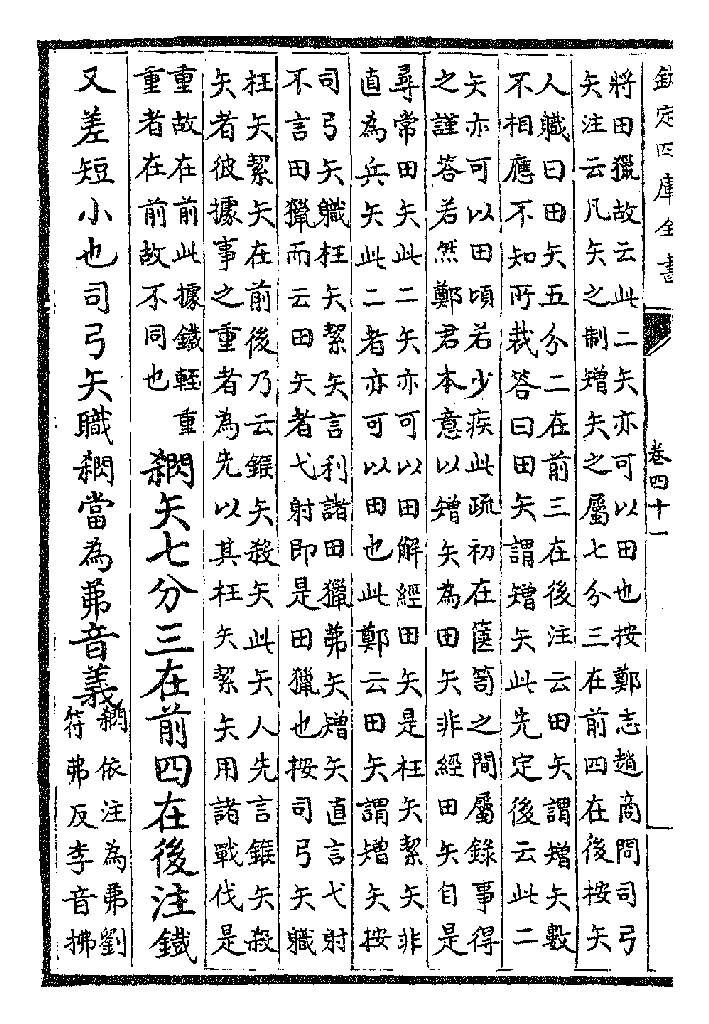 欽定四庫全書
卷四十一
將田獵故云此二矢亦可以田也按鄭志趙商問司弓
矢注云凡矢之制矰矢之屬七分三在前四在後按矢
人職曰田矢五分二在前三在後注云田矢謂矰矢數
不相應不知所裁答曰田矢謂矰矢此先定後云此二
矢亦可以田頃若少疾此疏初在篋笥之間屬錄事得
之謹答若然鄭君本意以矰矢為田矢非經田矢自是
尋常田矢此二矢亦可以田解經田矢是枉矢絜矢非
直為兵矢此二者亦可以田也此鄭云田矢謂矰矢按
司弓矢職枉矢絜矢言利諸田獵茀矢矰矢直言弋射
不言田獵而云田矢者弋射即是田獵也按司弓矢職
枉矢絜矢在前後乃云鍭矢殺矢此矢人先言鍭矢殺
矢者彼據事之重者為先以其枉矢絜矢用諸戰伐是
重故在前此據鐵輕重
重者在前故不同也
䦪矢七分三在前四在後注鐵
又差短小也司弓矢職䦪當為茀音義
䦪依注為茀劉
符弗反李音拂